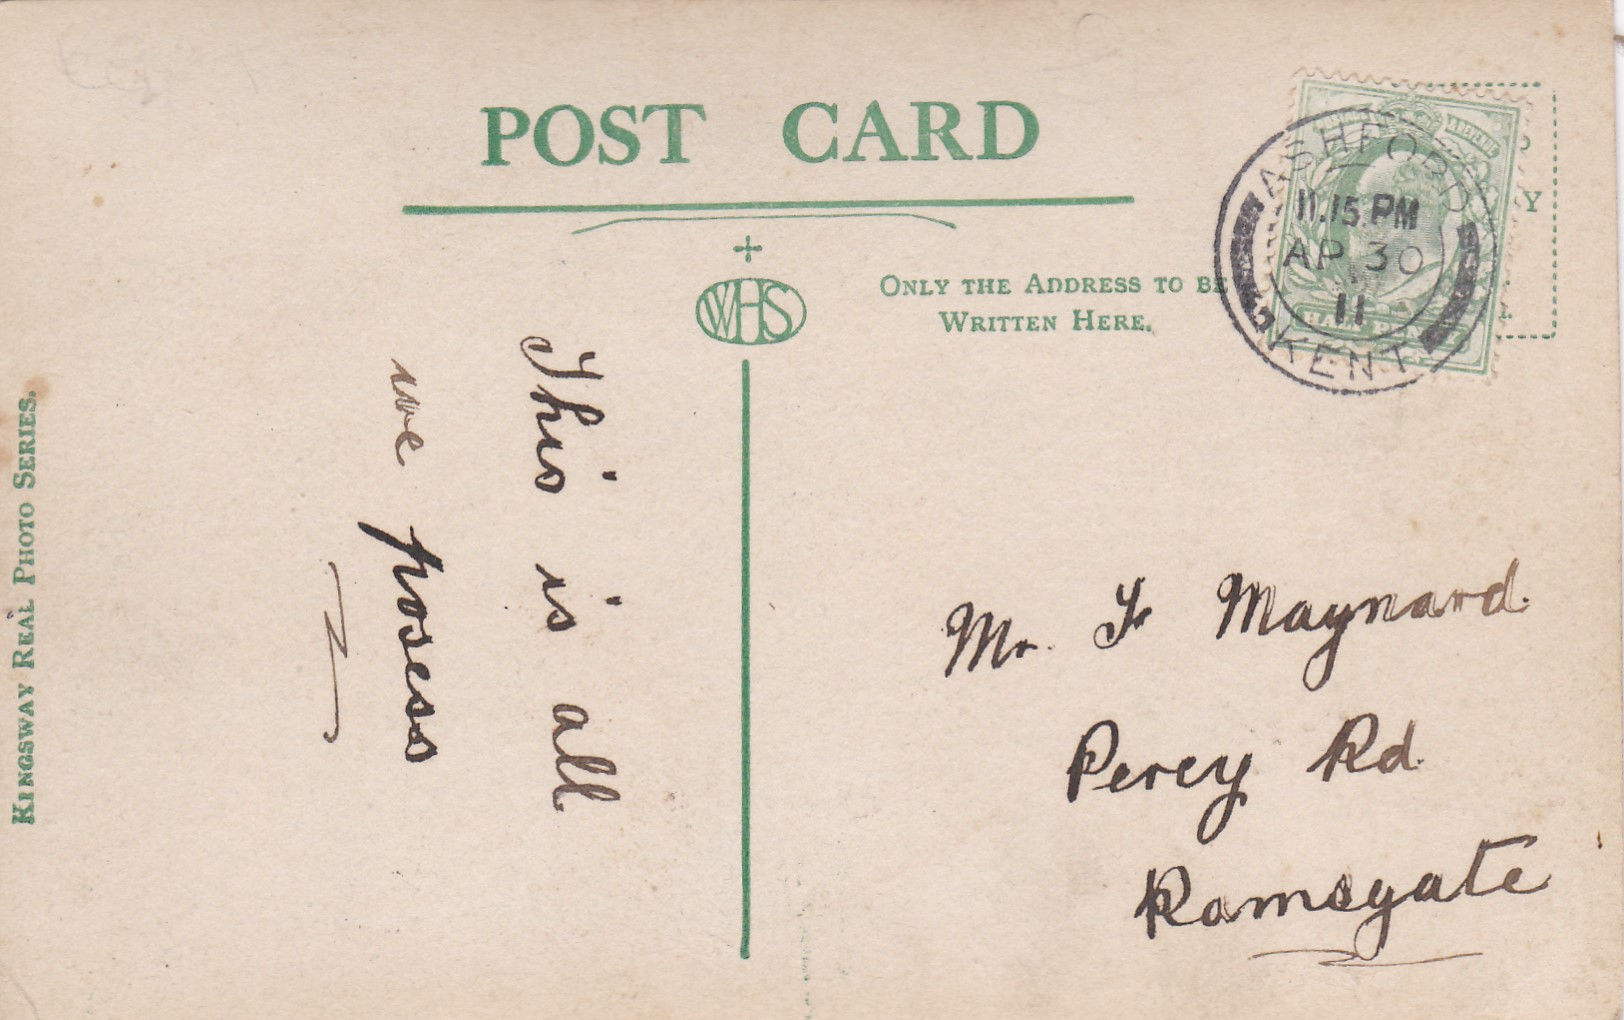 POST CARD
WHS
ONLY THE ADDRESS TO BE
WRITTEN HERE.
ASHFORD
11.15 PM
AP 30
11
KENT
HALF
This is all
we posess
Mr. Fr Maynard.
Percy Rd.
Ramsgate
KINGSWAY REAL PHOTO SERIES.